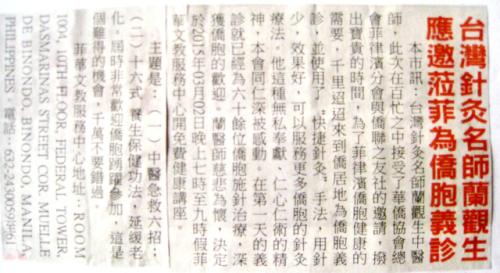 台灣針灸名師蘭觀生
應邀蒞菲為僑胞義診
本市訊：台灣針灸名師蘭觀生中醫
師，此次在百忙之中接受了華僑協會總
會菲律濱分會與僑聯之友社的邀請，撥
出寶貴的時間，為了菲律濱僑胞健康的
需要，千里迢迢來到僑居地為僑胞義
診，並使用了「快捷針灸」手法，用針
少，效果好，可以服務更多僑胞的針灸
療法。他這種無私奉獻、仁心仁術的精
神，本會同仁深被感動。在第一天的義
診就已經為六十餘位僑胞施針治療，深
獲僑胞的歡迎。蘭醫師慈悲為懷，決定
於2015年03月02日晚上七時至九時假菲
華文教服務中心開免費健康講座。
主題是：（一）中醫急救六招：
（二）十六式養生保健功法，延緩老
化。屆時非常歡迎僑胞踴躍參加，這是
個難得的機會，千萬不要錯過。
菲華文教服務中心地址：ROOM
1004, 10TH FLOOR, FEDERAL TOWER,
DASMARINAS STREET COR. MUELLE
DE BINONDO, BINONDO, MANILA,
PHILIPPINES 電話：632-2430059/61